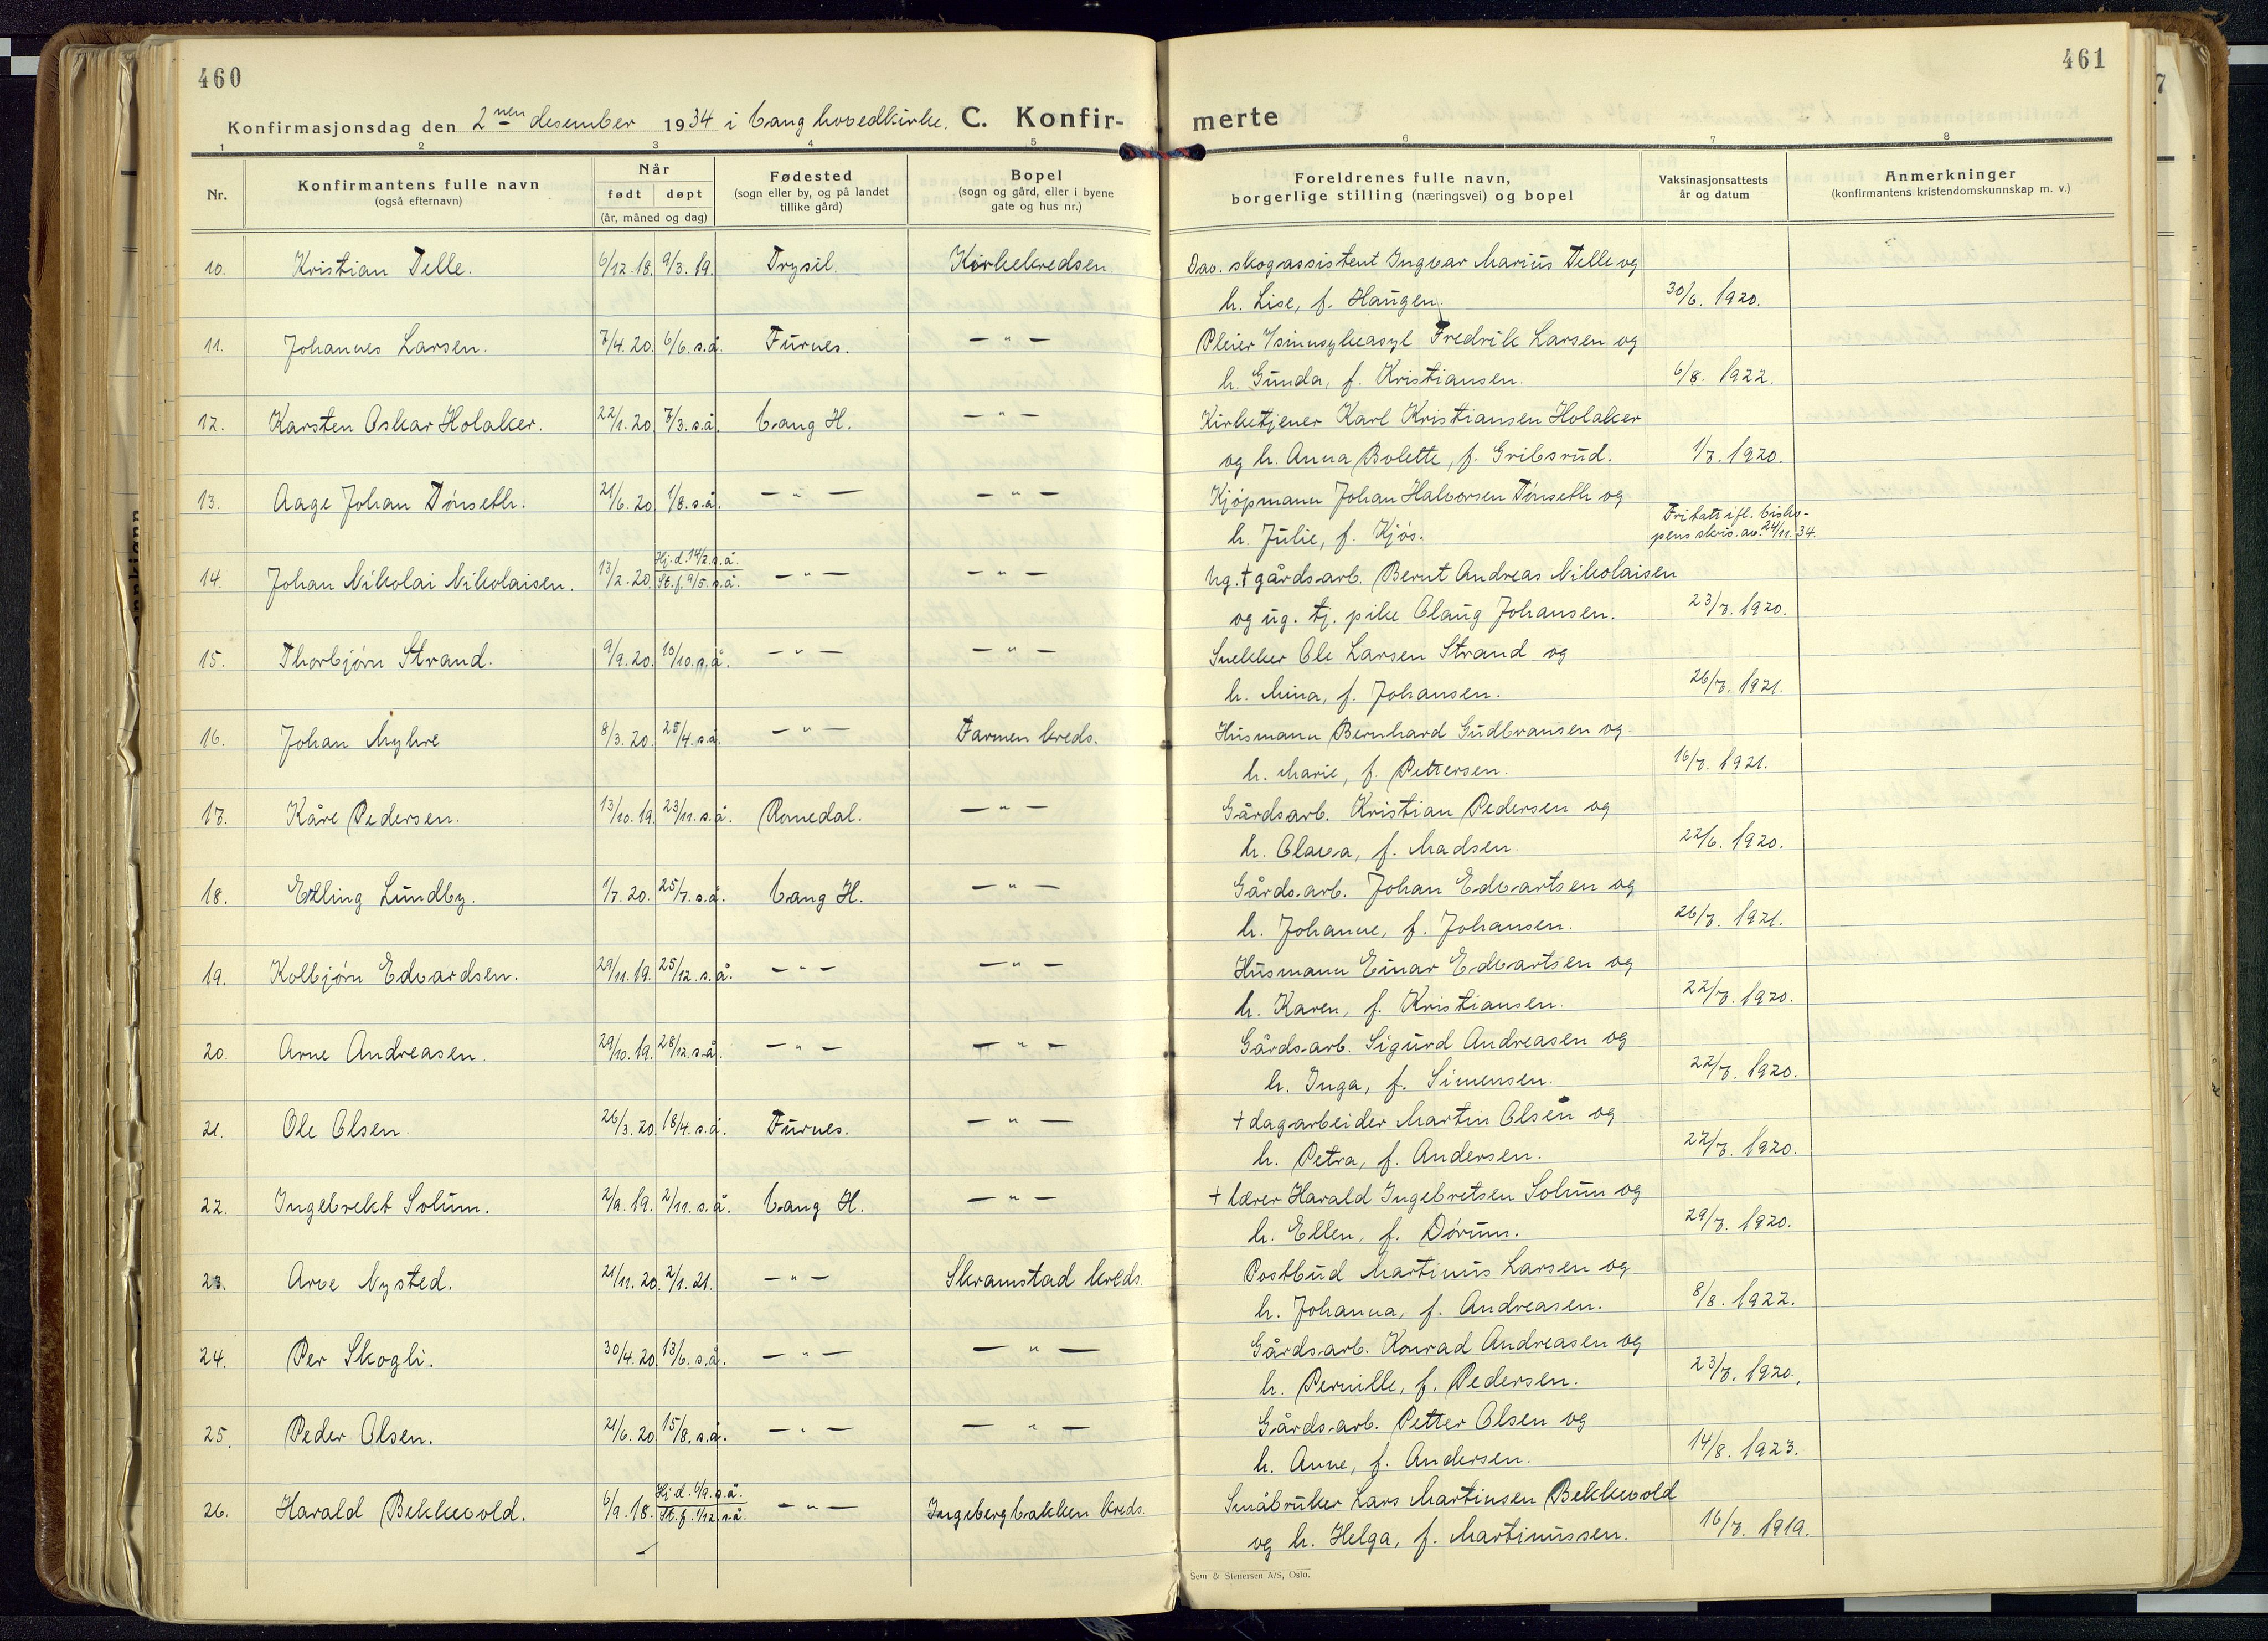 460
Konfirmasjonsdag den 2nen desember 1934 i Vang hovedkirke. C. Konfir-
1 2 3 4 5
Nr. Konfirmantens fulle navn (også efternavn) Når født døpt (år, måned og dag) Fødested (sogn eller by, og på landet tillike gård) Bopel (sogn og gård, eller i byene gate og hus nr.)
10. Kristian Telle. 6/12.18. 9/3.19. Trysil. Kirkekredsen
11. Johannes Larsen. 7/4.20. 6/6.s.å. Furnes. — " —
12. Karsten Oskar Holaker. 22/1.20. 7/3.s.å. Vang H. — " —
13. Aage Johan Tönseth. 21/6.20. 1/8.s.å. — " — — " —
14. Johan Nikolai Nikolaisen. 13/2.20. Hj.d. 14/2.s.å. St.f. 9/5.s.å. — " — — " —
15. Thorbjörn Strand. 9/9.20. 10/10.s.å. — " — — " —
16. Johan Myhre 8/3.20. 25/4.s.å. — " — Farmen kreds.
17. Kåre Pedersen. 13/10.19. 23/11.s.å. Romedal. — " —
18. Erling Lundby. 1/7.20. 25/7.s.å. Vang H. — " —
19. Kolbjörn Edvardsen. 29/11.19. 25/12.s.å. — " — — " —
20. Arne Andreasen. 29/10.19. 28/12.s.å. — " — — " —
21. Ole Olsen. 26/3.20. 18/4.s.å. Furnes. — " —
22. Ingebrekt Solum. 2/9.19. 2/11.s.å. Vang H. — " —
23. Arve Nysted. 21/11.20. 2/1.21. — " — Skramstad kreds
24. Per Skogli. 30/4.20. 13/6.s.å. — " — — " —
25. Peder Olsen. 21/6.20. 15/8.s.å. — " — — " —
26. Harald Bekkevold. 6/9.18. Hj.d. 6/9.s.å. St.f. 1/12.s.å. — " — Ingebergbakken kreds.
461
merte
6 7 8
Foreldrenes fulle navn, borgerlige stilling (næringsvei) og bopel Vaksinasjonsattests år og datum Anmerkninger (konfirmantens kristendomskunnskap m. v.)
Dav. skogassistent Ingvar Marius Telle og
h. Lise, f. Haugen. 30/6. 1920.
Pleier v/sinnsykeasyl Fredrik Larsen og
h. Gunda, f. Kristiansen. 6/8. 1922.
Kirketjener Karl Kristiansen Holaker
og h. Anna Bolette, f. Gribsrud. 1/7. 1920.
Kjöpmann Johan Halvorsen Tönseth og
h. Julie, f. Kjös. Fritatt ifl. bisko-
pens skriv. av. 24/11.34.
Ug. † gårdsarb. Bernt Andreas Nikolaisen
og ug. tj. pike Olaug Johansen. 23/7. 1920.
Snekker Ole Larsen Strand og
h. Mina, f. Johansen. 26/7. 1921.
Husmann Bernhard Gudbransen og
h. Marie, f. Pettersen. 16/7. 1921.
Gårdsarb. Kristian Pedersen og
h. Olava, f. Madsen. 22/6. 1920.
Gårdsarb. Johan Edvartsen og
h. Johanne, f. Johansen. 26/7. 1921.
Husmann Einar Edvartsen og
h. Karen, f. Kristiansen. 22/7. 1920.
Gårdsarb. Sigurd Andreasen og
h. Inga, f. Simensen. 22/7. 1920.
† dagarbeider Martin Olsen og
h. Petra, f. Andersen. 22/7. 1920.
† lærer Harald Ingebretsen Solum og
h. Ellen, f. Dörum. 29/7. 1920.
Postbud Martinus Larsen og
h. Johanna, f. Andreasen. 8/8. 1922.
Gårdsarb. Konrad Andreasen og
h. Pernille, f. Pedersen. 23/7. 1920.
Gårdsarb. Petter Olsen og
h. Anne, f. Andersen. 14/8. 1923.
Småbruker Lars Martinsen Bekkevold
og h. Helga, f. Martinussen. 16/7. 1919.
Sem & Stenersen A/S, Oslo.